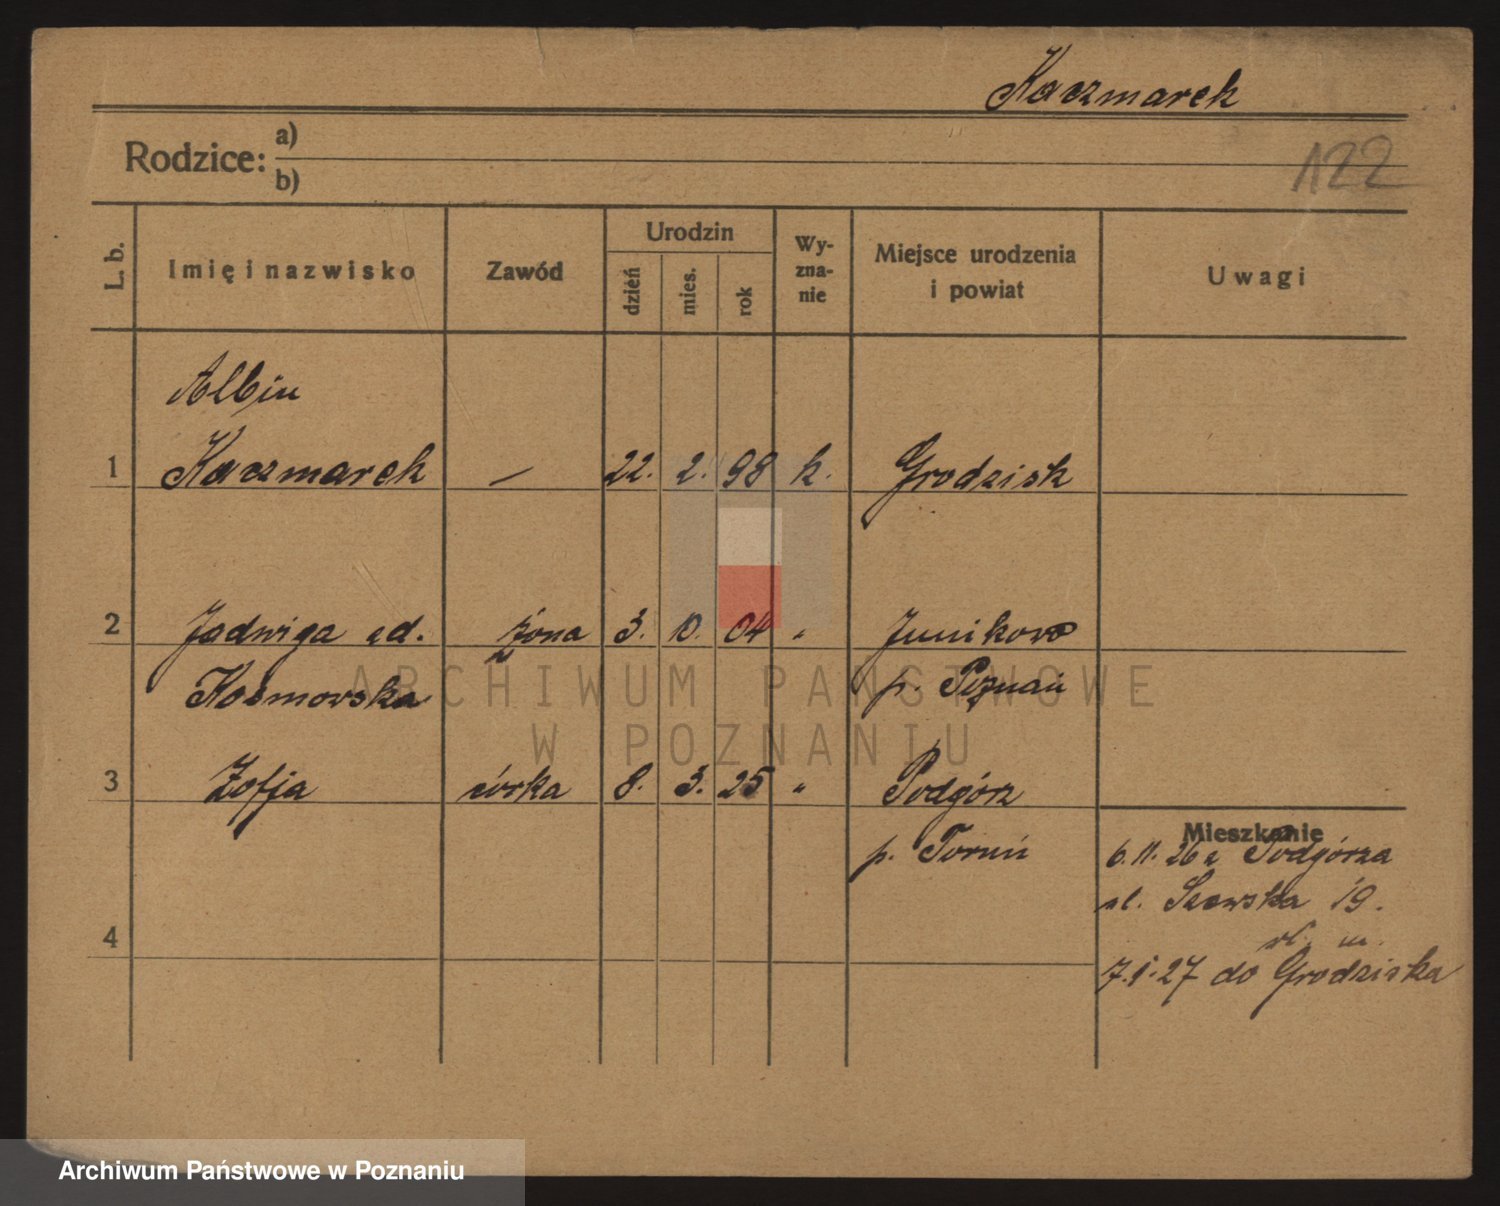 Kaczmarek
Rodzice: a)
b)
122
L. b.
Imię i nazwisko
Zawód
Urodzin
dzień
mies.
rok
Wy-
zna-
nie
Miejsce urodzenia
i powiat
Uwagi
Albin
1 Kaczmarek — 22. 2. 98 k. Grodzisk
2 Jadwiga zd. żona 3. 10. 04 " Junikowo
Kosmowska p. Poznań
3 Zofja córka 8. 3. 25 " Podgórz
p. Toruń
Mieszkanie
6.11.26 z Podgórza
ul. Szewska 19.
4
7.1.27 do Grodziska
ARCHIWUM PAŃSTWOWE
W POZNANIU
Archiwum Państwowe w Poznaniu